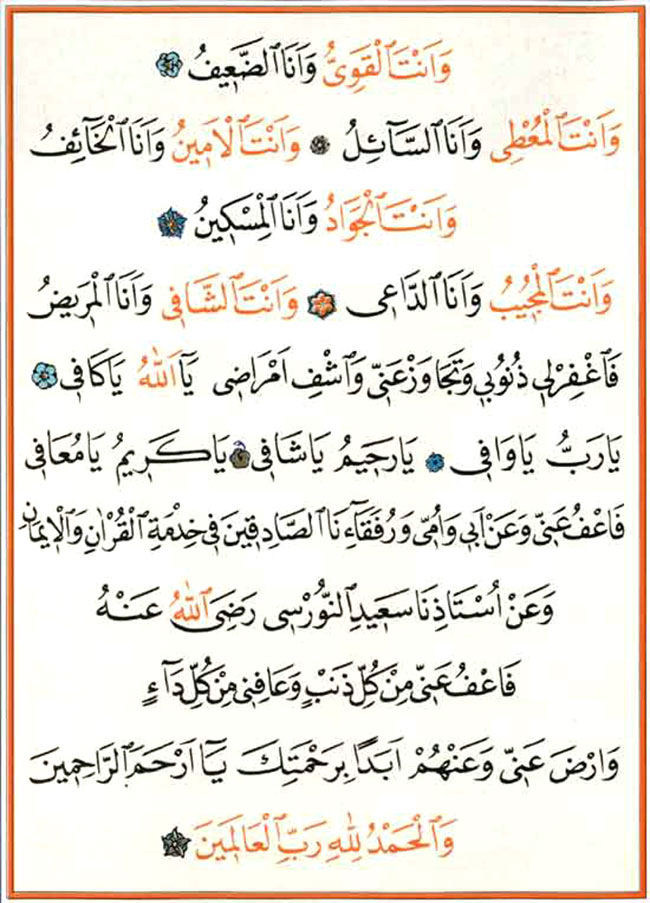 وَاَنْتَ الْقَوِىُّ وَاَنَا الضَّعِيفُ
وَاَنْتَ الْمُعْطِى وَاَنَا السَّٓائِلُ ۞ وَاَنْتَ الْاَمِينُ وَاَنَا الْخَٓائِفُ
وَاَنْتَ الْجَوَادُ وَاَنَا الْمِسْكِينُ
وَاَنْتَ الْمُجِيبُ وَاَنَا الدَّاعِى ۞ وَاَنْتَ الشَّافِى وَاَنَا الْمَرِيضُ
فَاغْفِرْلِى ذُنُوبِى وَتَجَاوَزْعَنِّى وَاشْفِ اَمْرَاضِى يَٓا اَللّٰهُ يَاكَافِى
يَارَبُّ يَاوَافِى ۞ يَارَحِيمُ يَاشَافِى ۞ يَاكَرِيمُ يَامُعَافِى
فَاعْفُ عَنِّى وَعَنْ اَبِى وَاُمِّى وَرُفَقَٓاءِنَا الصَّادِقِينَ فِى خِدْمَةِ الْقُرْاٰنِ وَالْاِيمَانِ
وَعَنْ اُسْتَاذِنَا سَعِيدِ النُّورْسِى رَضِىَ اللّٰهُ عَنْهُ
فَاعْفُ عَنِّى مِنْ كُلِّ ذَنْبٍ وَعَافِنِى مِنْ كُلِّ دَٓاءٍ
وَارْضَ عَنِّى وَعَنْهُمْ اَبَدًا بِرَحْمَتِكَ يَٓا اَرْحَمَ الرَّاحِمِينَ
وَالْحَمْدُ لِلّٰهِ رَبِّ الْعَالَمِينَ